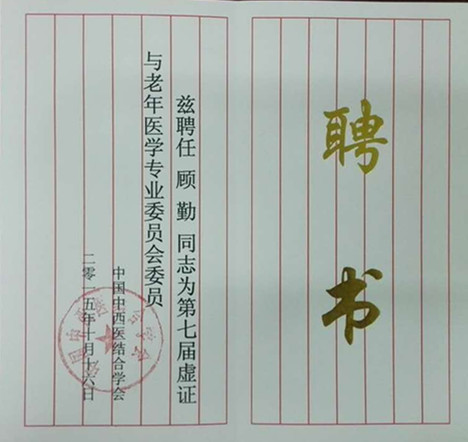 聘书
兹聘任 顾 勤 同志为第七届虚证
与老年医学专业委员会委员
中国中西医结合学会
二零一五年十月十六日